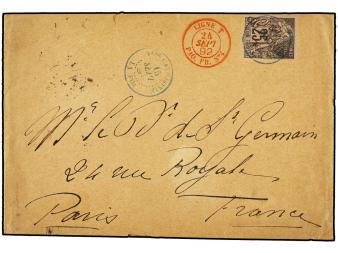 LIGNE T
24
SEPT
92
PAQ. FR. Nº
15
SEPT
25
Mr le Dr de St Germain
24 rue Royale
Paris France